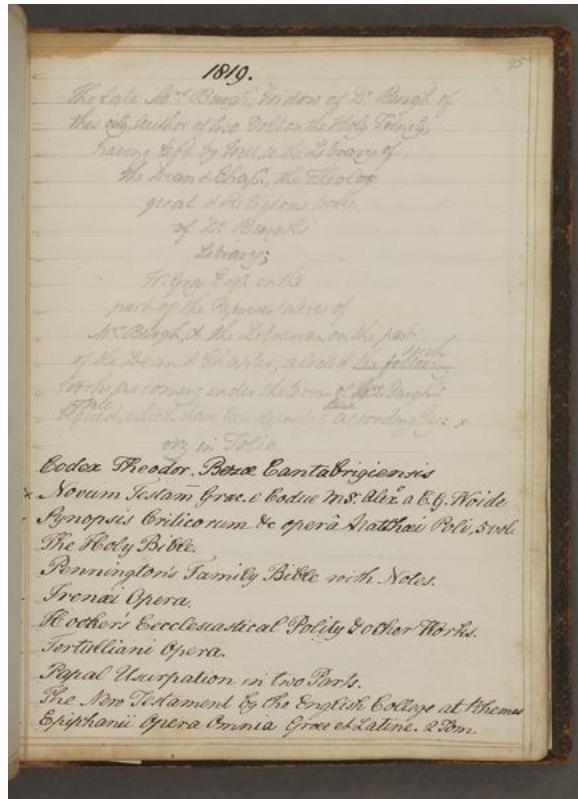 95
1819.
The late Mrs. Burgh, Widow of Dr. Burgh of
this city, Author of two Vols on the Holy Trinity,
having left by Will to the Library of
the Dean & Chapr., the Theolog
great & Religious
of Dr Burgh's
Library;
Wm. Gray Esqr. on the
part of the Representatives of
Mrs. Burgh, & the Librarian on the part
of the Dean & Chapter, selected the following
books, as coming under the terms of Mrs. Burgh's
which have been deposited accordingly: x
in Folio
Codex Theodor. Bezæ Cantabrigiensis
x Novum Testam̄ Græc. e Codice MS. Alex. a C. G. Woide
Synopsis Criticorum &c operâ Matthæi Poli, 5 vol.
The Holy Bible.
Pennington's Family Bible with Notes.
Irenæi Opera.
Hooker's Ecclesiastical Polity & other Works.
Tertulliani Opera.
Papal Usurpation in two Parts.
The New Testament by the English College at Rhemes
Epiphanii Opera Omnia Græc et Latine. 2 Tom.